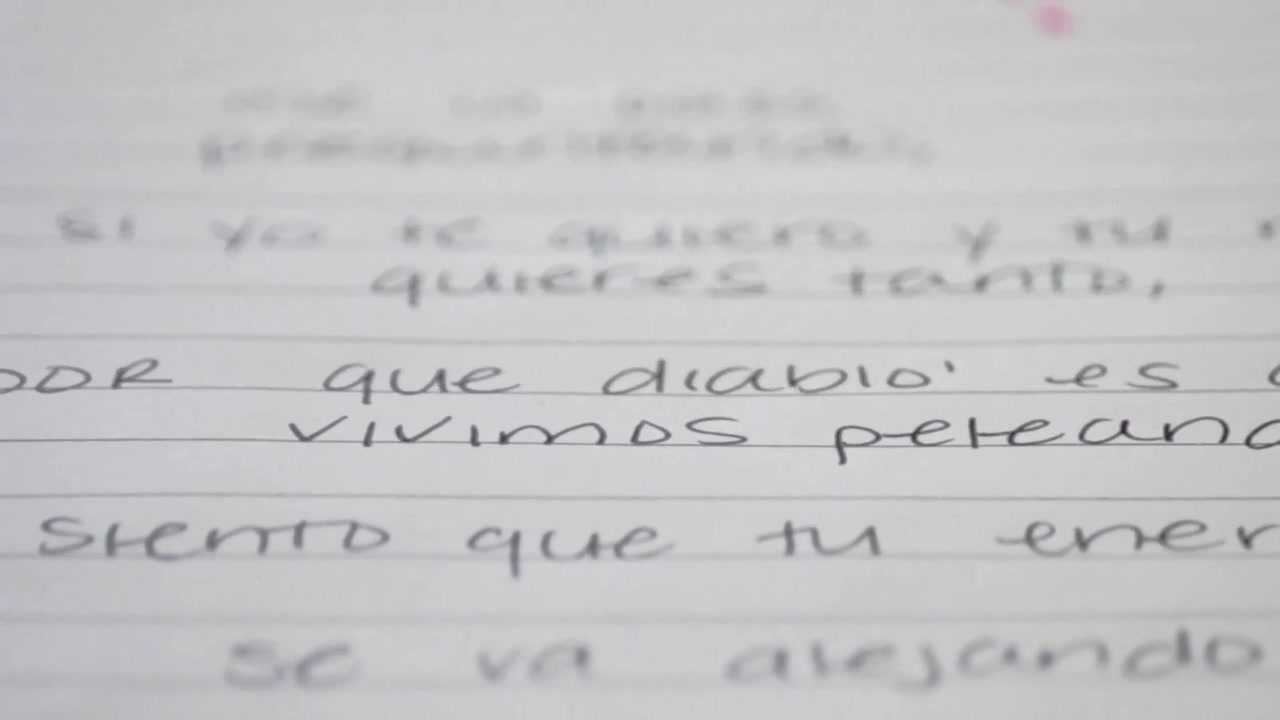 si yo te quiero y tu
quieres tanto,
por que diablo' es
vivimos peleand
siento que tu ener
se va alejando